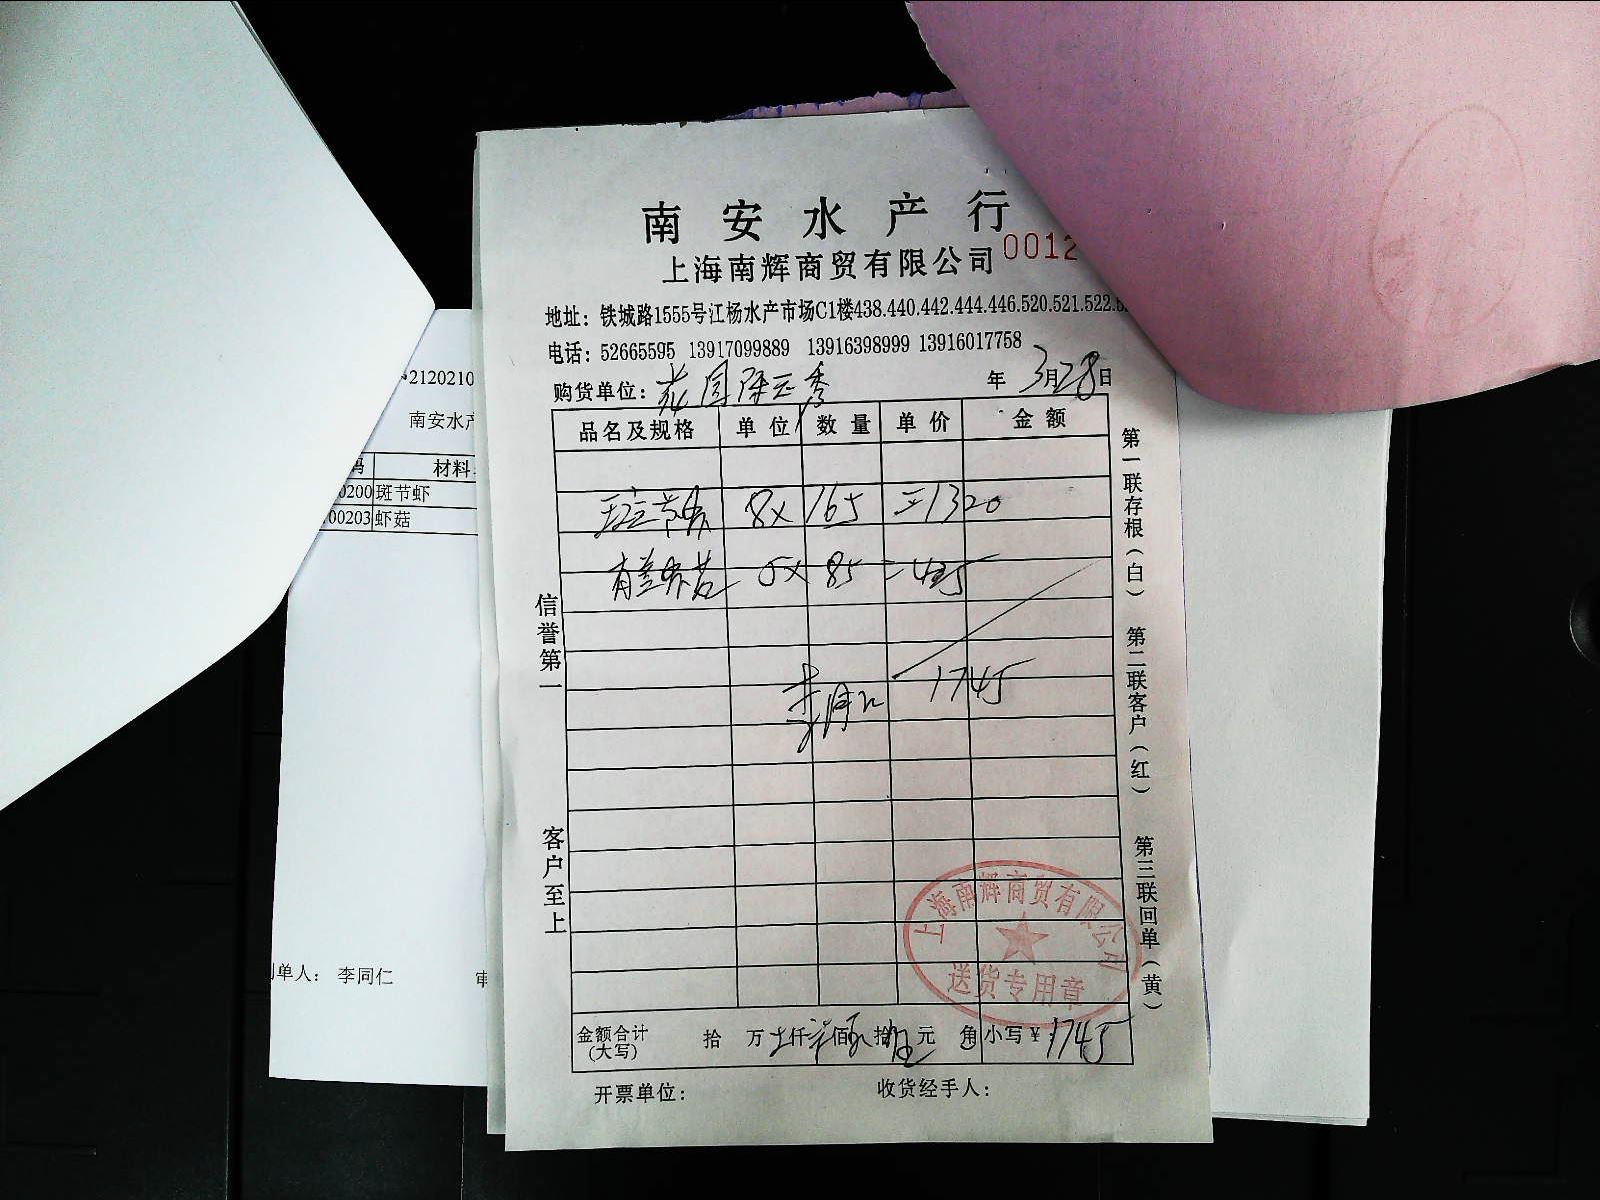 南安水产行
上海南辉商贸有限公司 0012
地址：铁城路1555号江杨水产市场C1楼438.440.442.444.446.520.521.522.5
电话：52665595 13917099889 13916398999 13916017758
购货单位： 年 3月28日
品名及规格 单位 数量 单价 金额
斑节虾 8× 165 =1320
5× 85 =425
1745
金额合计(大写) 拾 万 仟 佰 拾 元 角 小写￥1745
开票单位： 收货经手人：
信誉第一
客户至上
第一联存根（白） 第二联客户（红） 第三联回单（黄）
上海南辉商贸有限公司
送货专用章
2120210
南安水产
码 材料
0200 斑节虾
00203 虾菇
单人： 李同仁 审